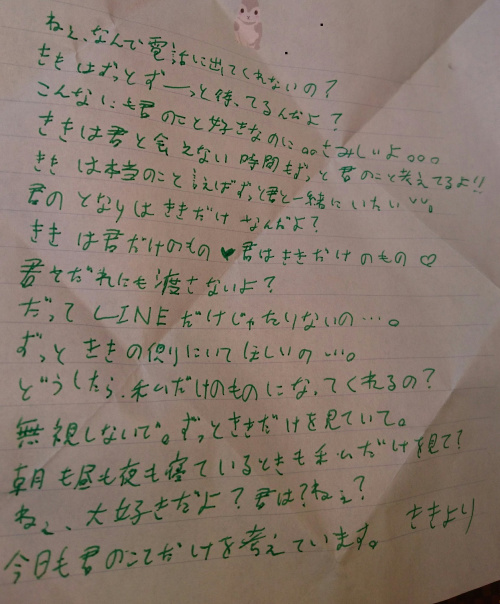 ねぇ、なんで電話に出てくれないの？
ききはずっとずーっと待ってるんだよ？
こんなにも君のこと好きなのに。。さみしいよ。。。
ききは君と会えない時間もずっと君のこと考えてるよ!!
ききは本当のこと言えばずっと君と一緒にいたい。
君のとなりはききだけなんだよ？
ききは君だけのもの♥君はききだけのもの♡
君をだれにも渡さないよ？
だってLINEだけじゃたりないの…。
ずっとききの側りにいてほしいの…。
どうしたら、私だけのものになってくれるの？
無視しないで。ずっとききだけを見ていて。
朝も昼も夜も寝ているときも私だけを見て？
ねぇ、大好きだよ？君は？ねぇ？
今日も君のことだけを考えています。 ききより